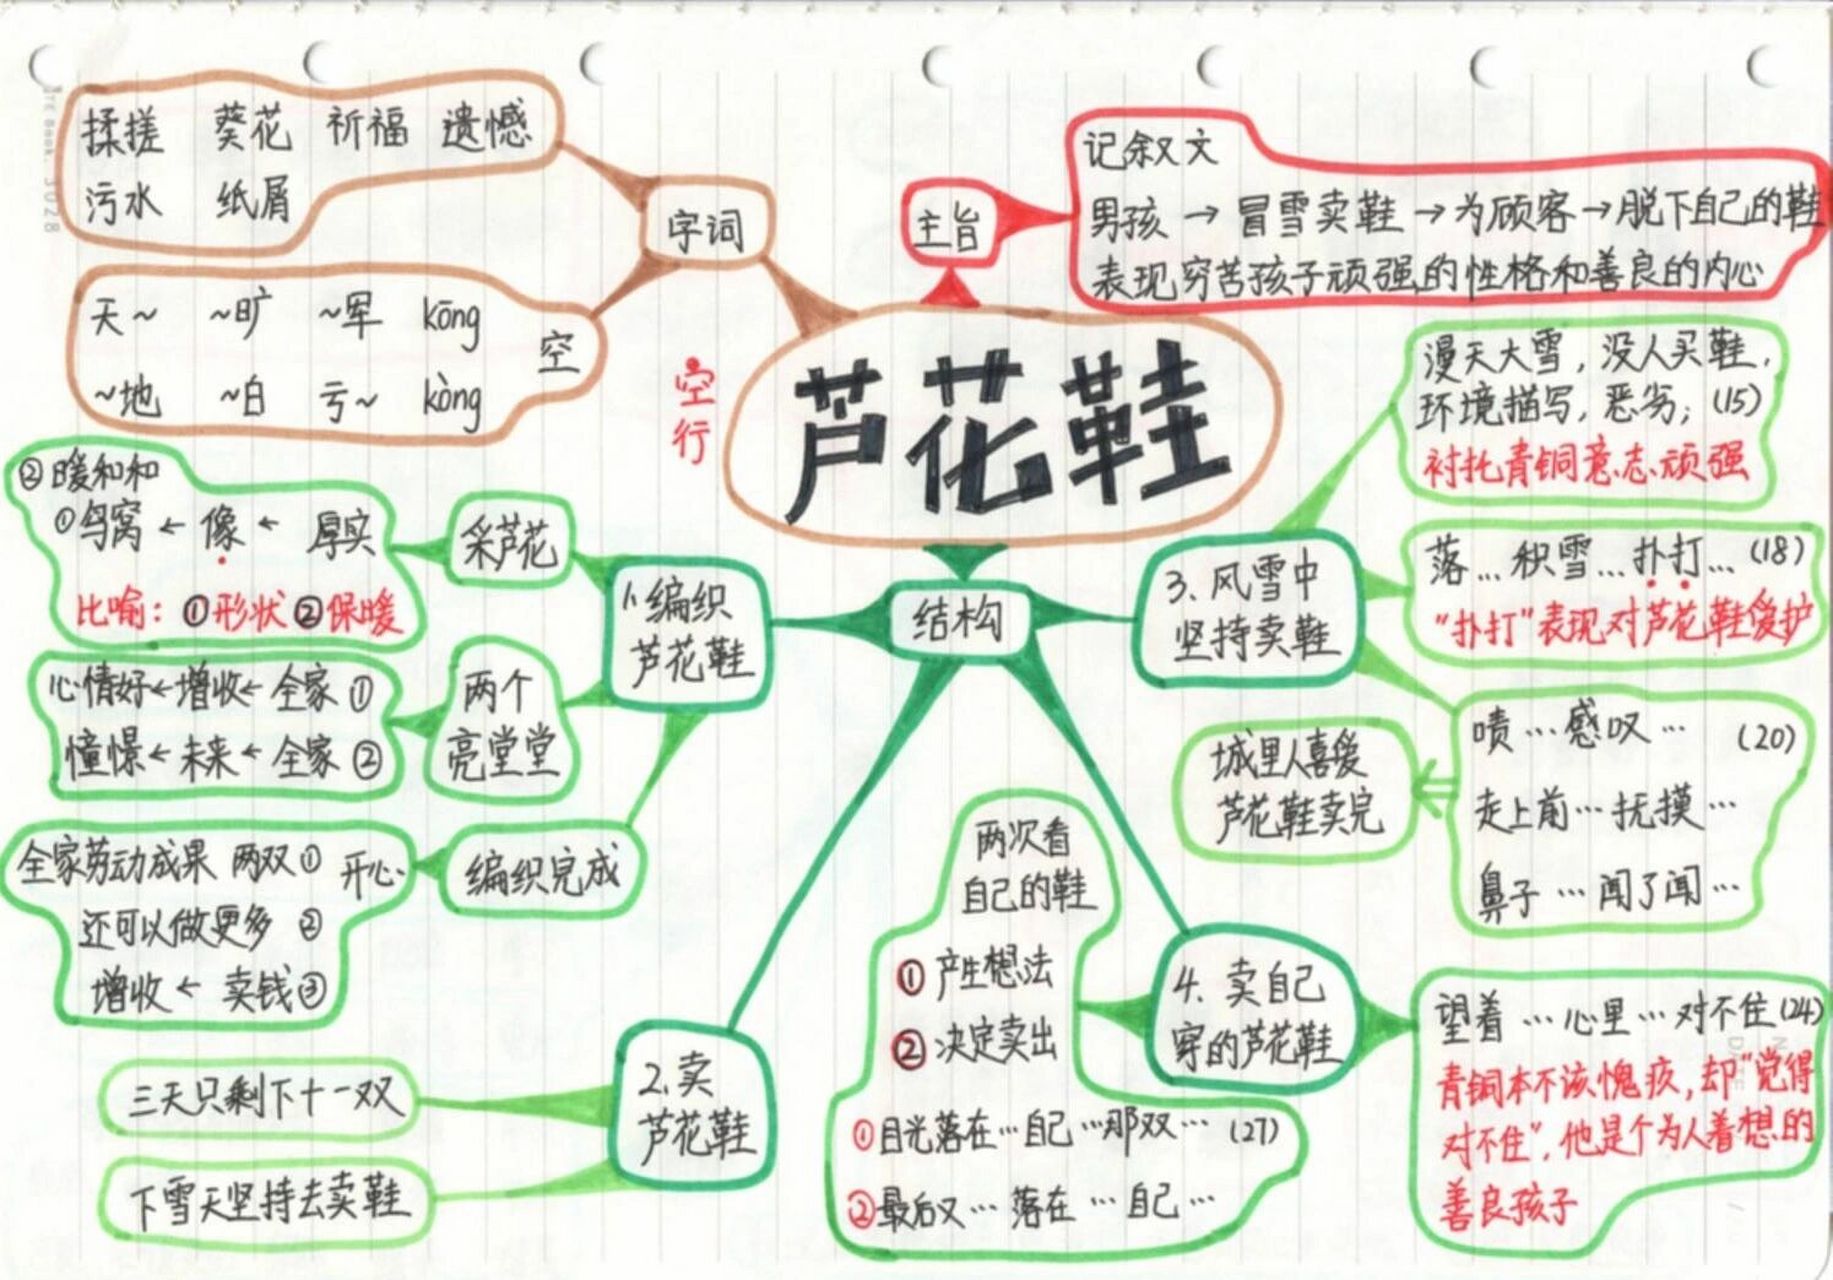 芦花鞋
空行
字词
揉搓 葵花 祈福 遗憾
污水 纸屑
天~ ~旷 ~军 kōng
空
~地 ~白 亏~ kòng
主旨
记叙文
男孩 → 冒雪卖鞋 → 为顾客 → 脱下自己的鞋
表现穷苦孩子顽强的性格和善良的内心
结构
1.编织
芦花鞋
采芦花
②暖和和
①鸟窝 ← 像 ← 厚实
比喻：①形状②保暖
两个
亮堂堂
心情好←增收←全家①
憧憬←未来←全家②
编织完成
全家劳动成果 两双① 开心
还可以做更多 ②
增收 ← 卖钱③
2.卖
芦花鞋
三天只剩下十一双
下雪天坚持去卖鞋
3.风雪中
坚持卖鞋
漫天大雪，没人买鞋，
环境描写，恶劣；(15)
衬托青铜意志顽强
落…积雪…扑打…(18)
“扑打”表现对芦花鞋爱护
啧…感叹… (20)
走上前…抚摸…
鼻子…闻了闻…
城里人喜爱
芦花鞋卖完
4.卖自己
穿的芦花鞋
两次看
自己的鞋
①产生想法
②决定卖出
①目光落在…自己…那双…(27)
②最后又…落在…自己…
望着…心里…对不住(24)
青铜本不该愧疚，却“觉得
对不住”，他是个为人着想的
善良孩子